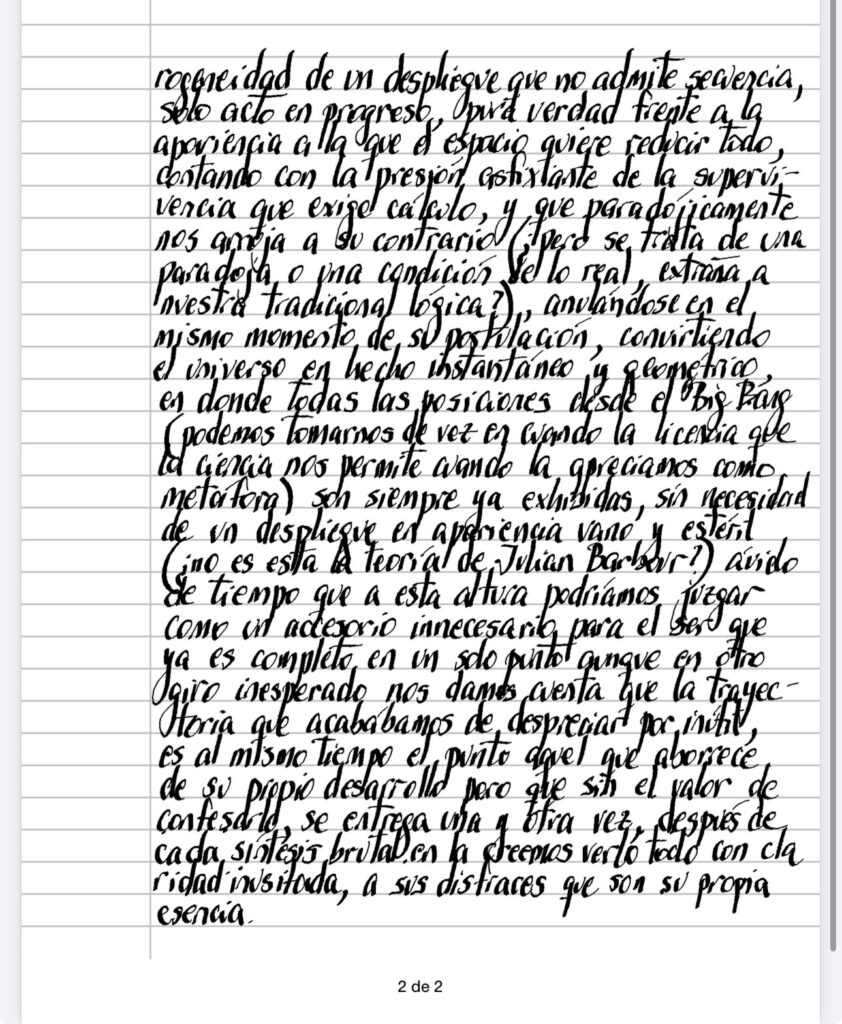 rogeneidad de un despliegue que no admite secuencia,
solo acto en progreso, pura verdad frente a la
apariencia a la que el espacio quiere reducir todo,
contando con la presión asfixiante de la supervi-
vencia que exige cálculo, y que paradójicamente
nos arroja a su contrario (¿pero se trata de una
paradoja o una condición de lo real, extraña a
nuestra tradicional lógica?), anulándose en el
mismo momento de su postulación, convirtiendo
el universo en hecho instantáneo y geométrico,
en donde todas las posiciones desde el Big Bang
(podemos tomarnos de vez en cuando la licencia que
la ciencia nos permite cuando la apreciamos como
metáfora) son siempre ya exhibidas, sin necesidad
de un despliegue en apariencia vano y estéril
(¿no es esta la teoría de Julian Barbour?) ávido
de tiempo que a esta altura podríamos juzgar
como un accesorio innecesario para el ser que
ya es completo en un solo punto aunque en otro
giro inesperado nos damos cuenta que la trayec-
toria que acabábamos de despreciar por inútil,
es al mismo tiempo el punto aquel que aborrece
de su propio desarrollo pero que sin el valor de
confesarlo, se entrega una y otra vez, después de
cada síntesis brutal en la creemos verlo todo con cla
ridad inusitada, a sus disfraces que son su propia
esencia.
2 de 2